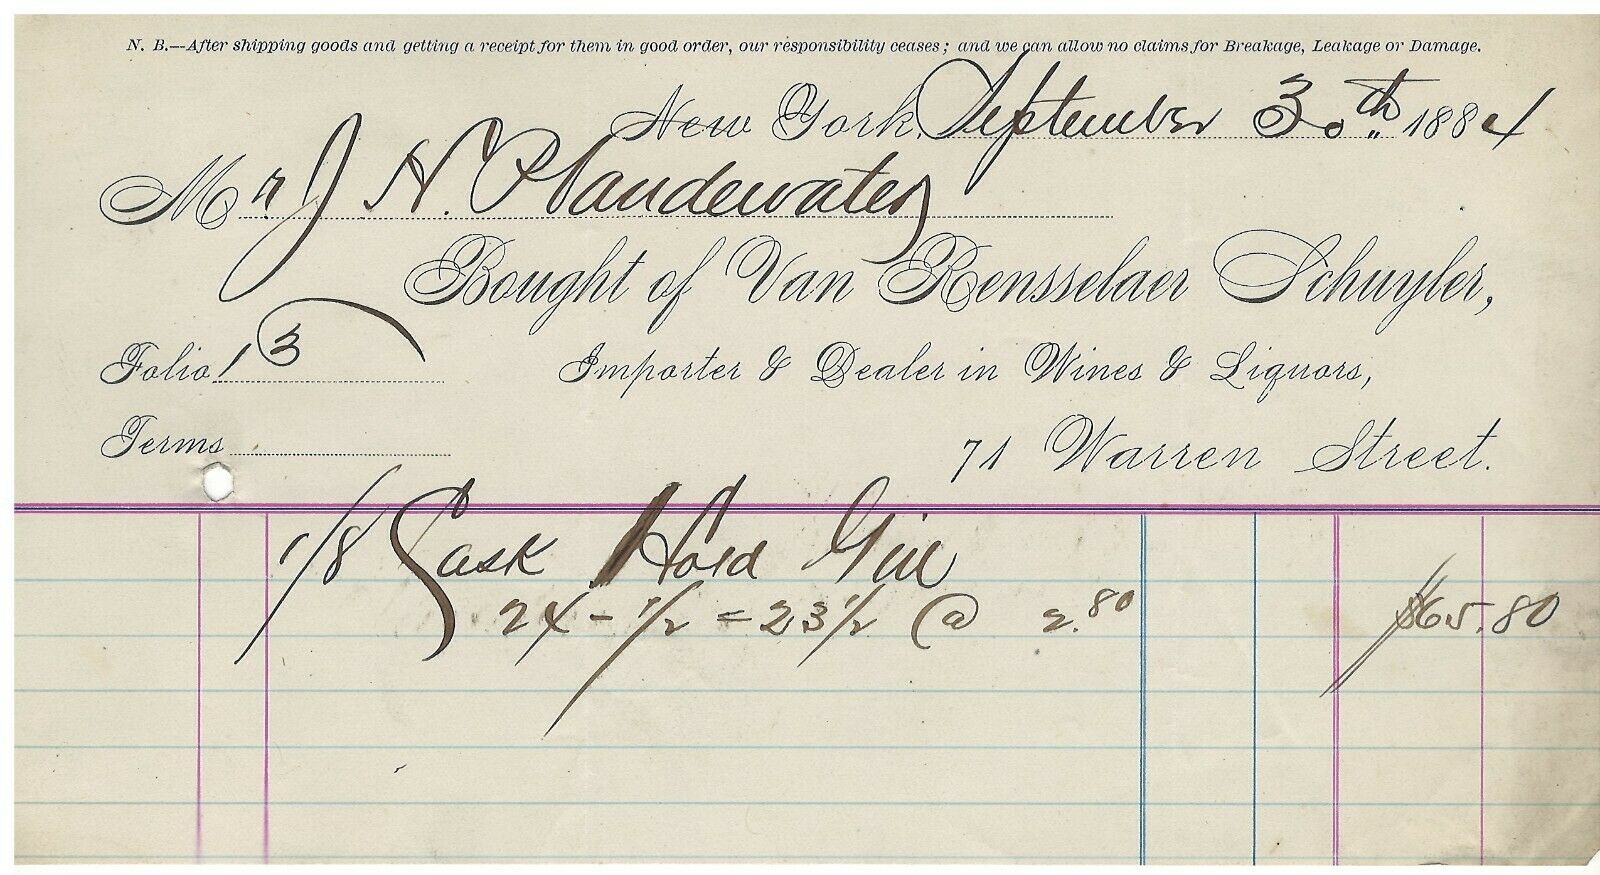 N. B.—After shipping goods and getting a receipt for them in good order, our responsibility ceases; and we can allow no claims for Breakage, Leakage or Damage.
New York, September 30th 1884
Mr J H Vandewater
Bought of Van Rensselaer Schuyler,
Folio 13 Importer & Dealer in Wines & Liquors,
Terms 71 Warren Street.
1/8 Cask Hold Gin
24 - 1/2 = 23 1/2 @ 2.80 $65.80